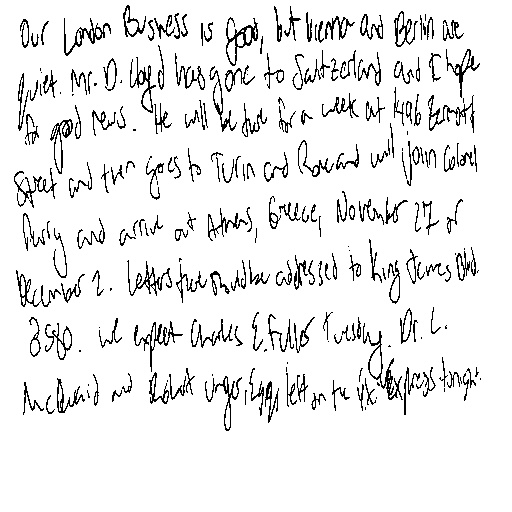 Our London Business is good, but Vienna and Berlin are
quiet. Mr. D. Lloyd has gone to Switzerland and I hope
for good news. He will be there for a week at 1496 Zermott
Street and then goes to Turin and Rome and will join Colonel
Parry and arrive at Athens, Greece, November 27 or
December 2. Letters there should be addressed to King James Blvd.
3580. We expect Charles E. Fuller Tuesday. Dr. L.
McQuaid and Robert Unger, Esq., left on the Y.X. Express tonight.